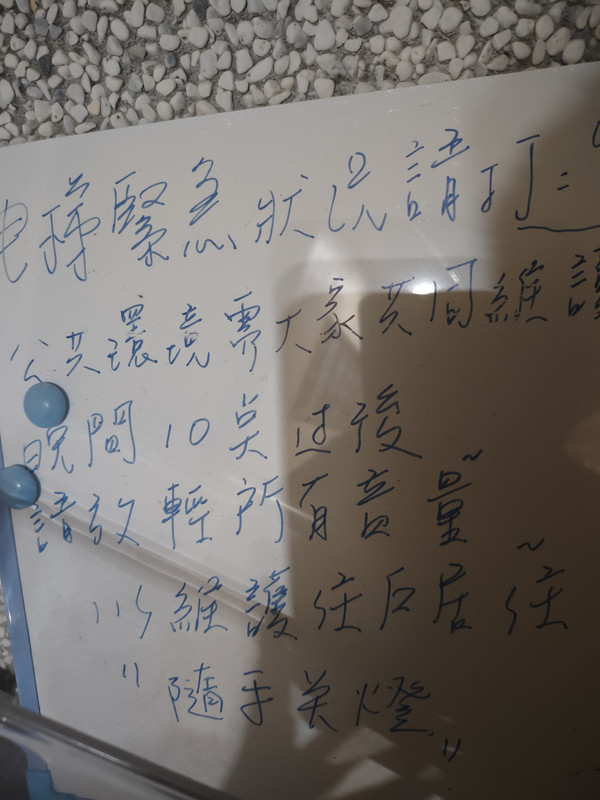 电梯緊急狀况請打=
公共環境需大家共同維護
晚間10点过後
請放輕所有音量~
以維護住戶居住~
"隨手关燈"